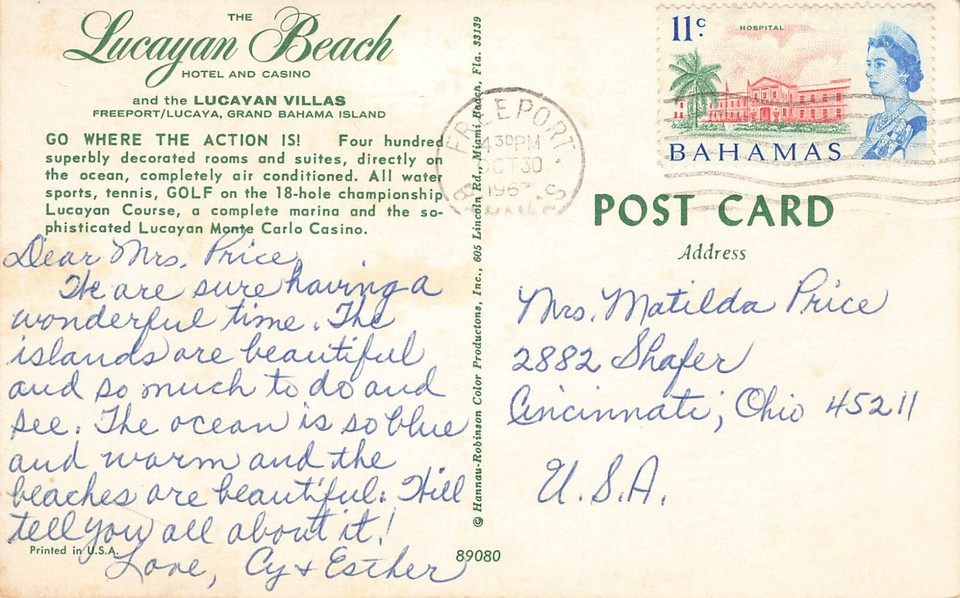 THE
Lucayan Beach
HOTEL AND CASINO
and the LUCAYAN VILLAS
FREEPORT/LUCAYA, GRAND BAHAMA ISLAND
GO WHERE THE ACTION IS! Four hundred
superbly decorated rooms and suites, directly on
the ocean, completely air conditioned. All water
sports, tennis, GOLF on the 18-hole championship
Lucayan Course, a complete marina and the so-
phisticated Lucayan Monte Carlo Casino.
Dear Mrs. Price,
We are sure having a
wonderful time. The
islands are beautiful
and so much to do and
see. The ocean is so blue
and warm and the
beaches are beautiful. Will
tell you all about it!
Love, Cy & Esther
Printed in U.S.A.
© Hannau-Robinson Color Productons, Inc., 605 Lincoln Rd., Miami Beach, Fla. 33139
89080
FREEPORT
30PM
OCT 30
11c
HOSPITAL
BAHAMAS
POST CARD
Address
Mrs. Matilda Price
2882 Shafer
Cincinnati, Ohio 45211
U.S.A.